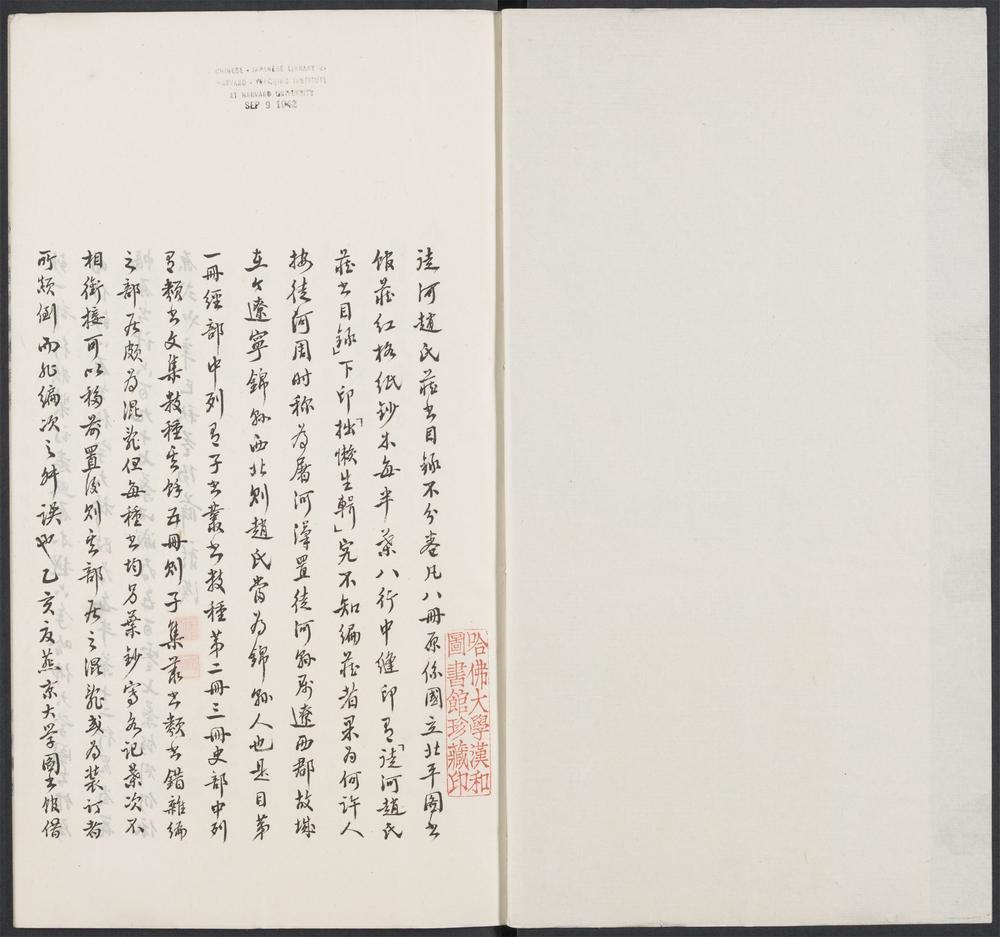 CHINESE - JAPANESE LIBRARY OF
HARVARD - YENCHING INSTITUTE
AT HARVARD UNIVERSITY
SEP 9 1942
哈佛大學漢和
圖書館珍藏印
徒河趙氏藏书目錄不分卷凡八冊原係國立北平圖书
馆藏红格纸鈔本每半葉八行中縫印有「徒河趙氏
藏书目録」下印「拙懒生輯」究不知編藏者果为何許人
按徒河周时称为屠河漢置徒河縣属遼西郡故城
在今遼寧錦縣西北则趙氏當为錦縣人也是目第
一冊經部中列有子书叢书数種第二冊三冊史部中列
有類书文集数種其餘五冊则子集叢书類书錯雜編
之部居颇为混亂但每種书均另葉鈔寫各记葉次不
相銜接可以移前置後则其部居之混亂或为装订者
所颠倒而非編次之舛误也乙亥夏燕京大学图书馆借